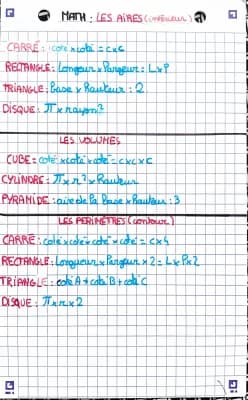 MATH : LES AIRES (intérieur)
CARRÉ : coté × coté = c×c
RECTANGLE : Longeur × Largeur : L×P
TRIANGLE : Base × Hauteur : 2
DISQUE : π × rayon²
LES VOLUMES
CUBE : coté × coté × coté = c×c×c
CYLINDRE : π × r² × Hauteur
PYRAMIDE : aire de la base × Hauteur : 3
LES PÉRIMÈTRES (contour)
CARRÉ : coté × coté × coté × coté = c×4
RECTANGLE : Longueur × Largeur × 2 = L×P×2
TRIANGLE : coté A + coté B + coté C
DISQUE : π × r × 2